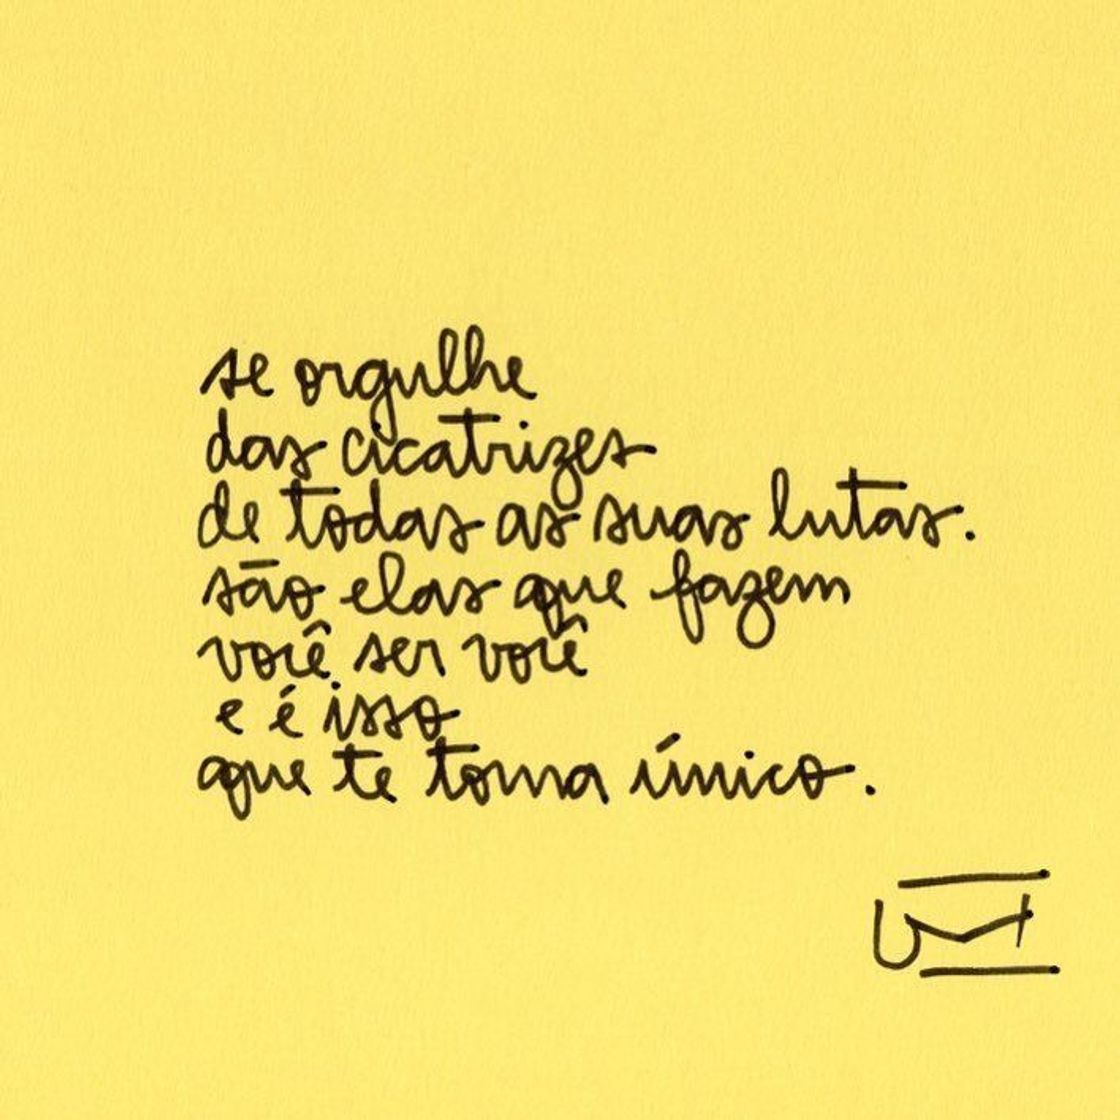 se orgulhe
das cicatrizes
de todas as suas lutas.
são elas que fazem
você ser você
e é isso
que te torna único.